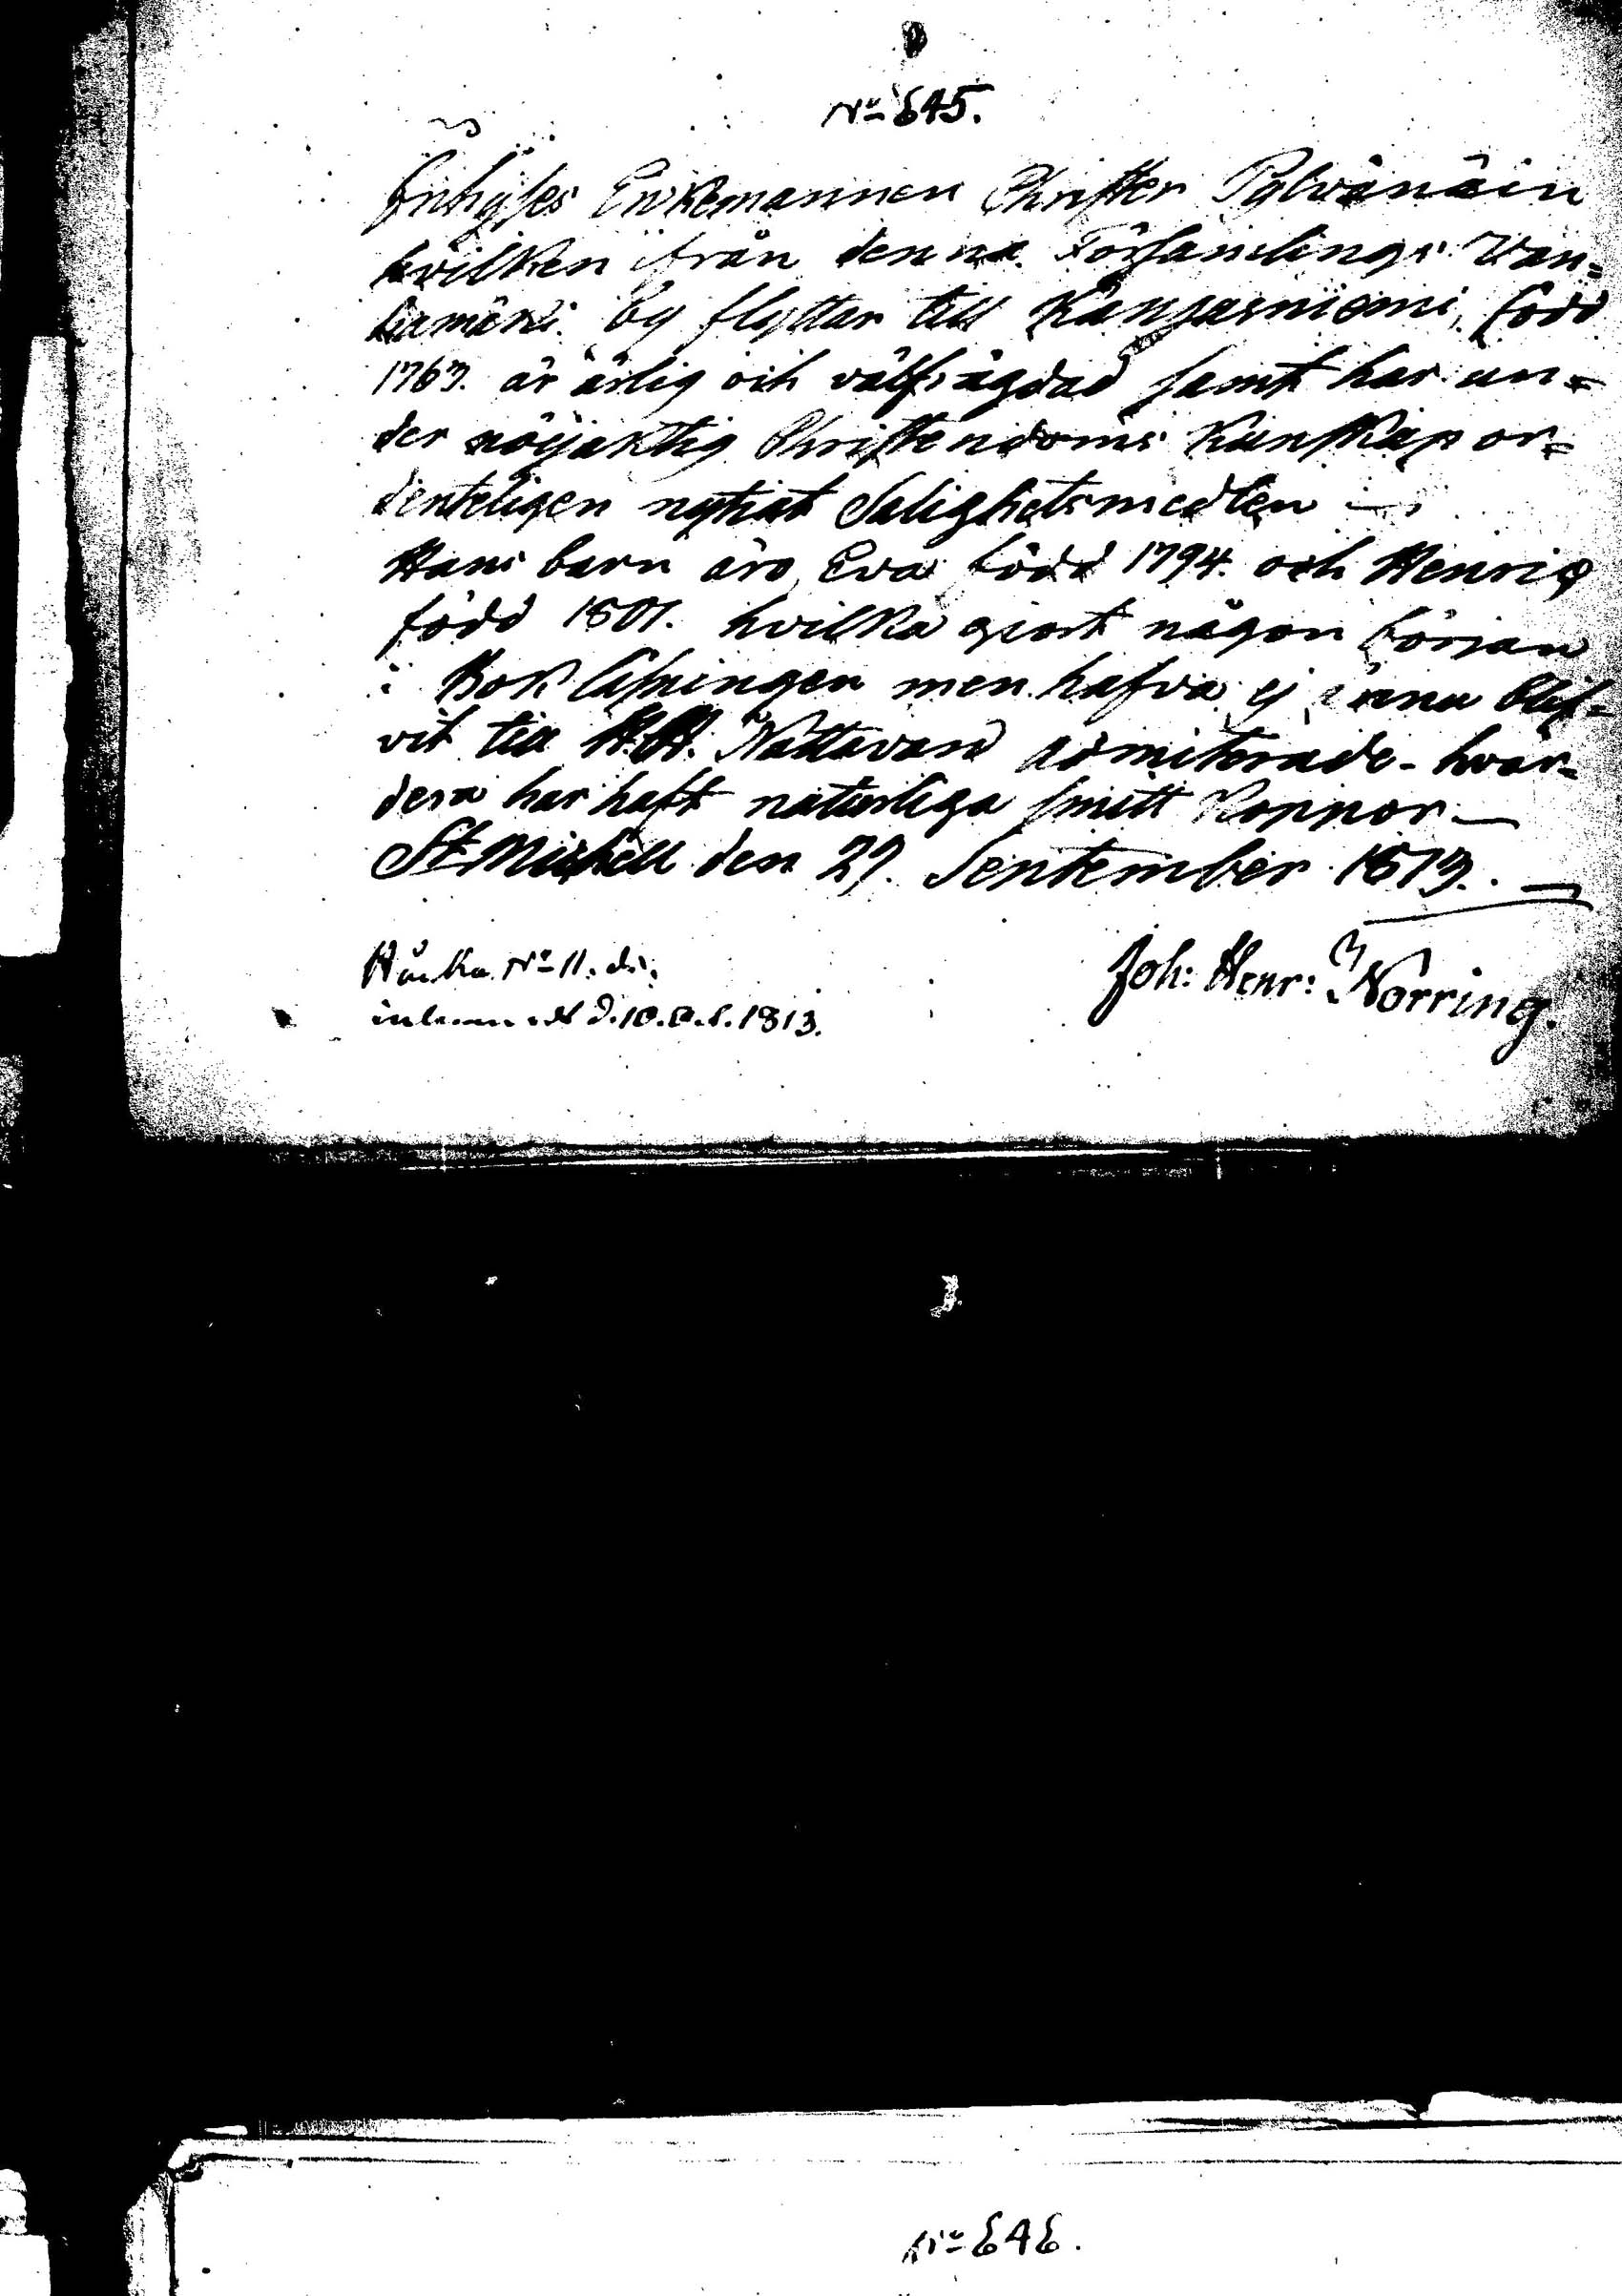 No 645.
Inhyses Enkemannen Christer Pylvänäin
hvilken från denna Församlings Van-
hamäki by flyttar till Kangasniemi, född
1763. är ärlig och välfrägdad samt har un-
der nöyaktig Christendoms Kunskap or-
denteligen nyttjat Salighetsmedlen —
Hans barn äro Eva född 1794. och Henric
född 1801. hvilka giort någon början
i Bok läsningen men hafva ej ännu blif-
vit till H.H. Nattvard admitterade - hvar-
dera har haft naturliga smitt Koppor —
St Michell den 29. September 1813. —
Joh: Henr: Norring.
No 11.
d. 10. 1813.
No 646.